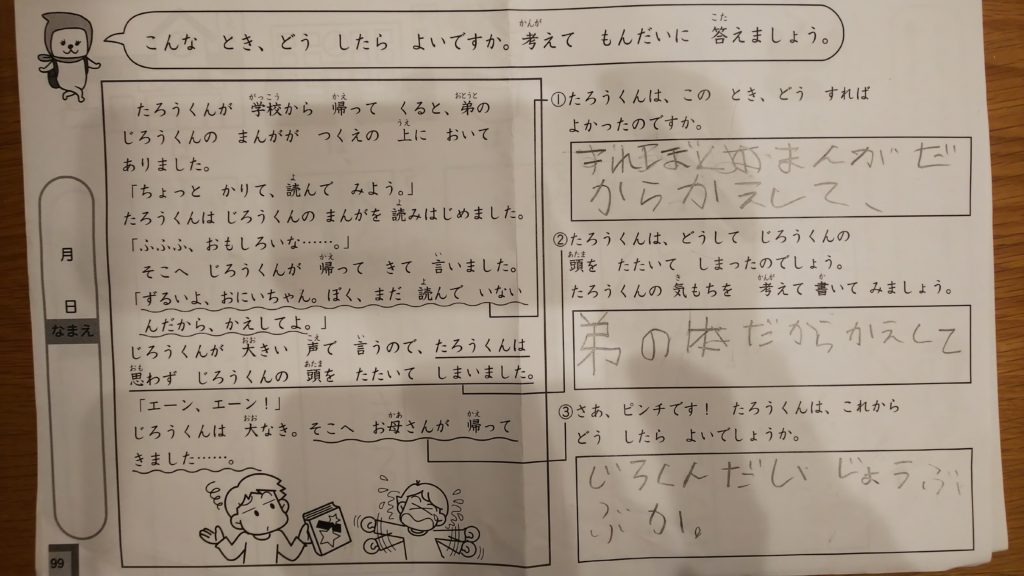 こんな とき、どう したら よいですか。考えて もんだいに 答えましょう。
たろうくんが 学校から 帰って くると、弟の
じろうくんの まんがが つくえの 上に おいて
ありました。
「ちょっと かりて、読んで みよう。」
たろうくんは じろうくんの まんがを 読みはじめました。
「ふふふ、おもしろいな……。」
そこへ じろうくんが 帰って きて 言いました。
「ずるいよ、おにいちゃん。ぼく、まだ 読んで いない
んだから、かえしてよ。」
じろうくんが 大きい 声で 言うので、たろうくんは
思わず じろうくんの 頭を たたいて しまいました。
「エーン、エーン！」
じろうくんは 大なき。そこへ お母さんが 帰って
きました……。
①たろうくんは、この とき、どう すれば
よかったのですか。
まんがだ
からかえして、
②たろうくんは、どうして じろうくんの
頭を たたいて しまったのでしょう。
たろうくんの 気もちを 考えて 書いて みましょう。
弟の本だからかえして
③さあ、ピンチです！ たろうくんは、これから
どう したら よいでしょうか。
じろくんだいじょうぶ
ぶか。
月
日
なまえ
99